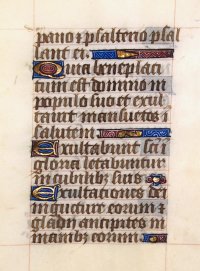 pano i psalterio psal
lant ei.
Quia beneplaci
tum est domino in
populo suo et exul
tauit mansuetos i
salutem
Exultabunt sci i
gloria letabuntur
in cubilibus suis
Exultationes dei
in gutture eorum i
gladij ancipites in
manibus eorum